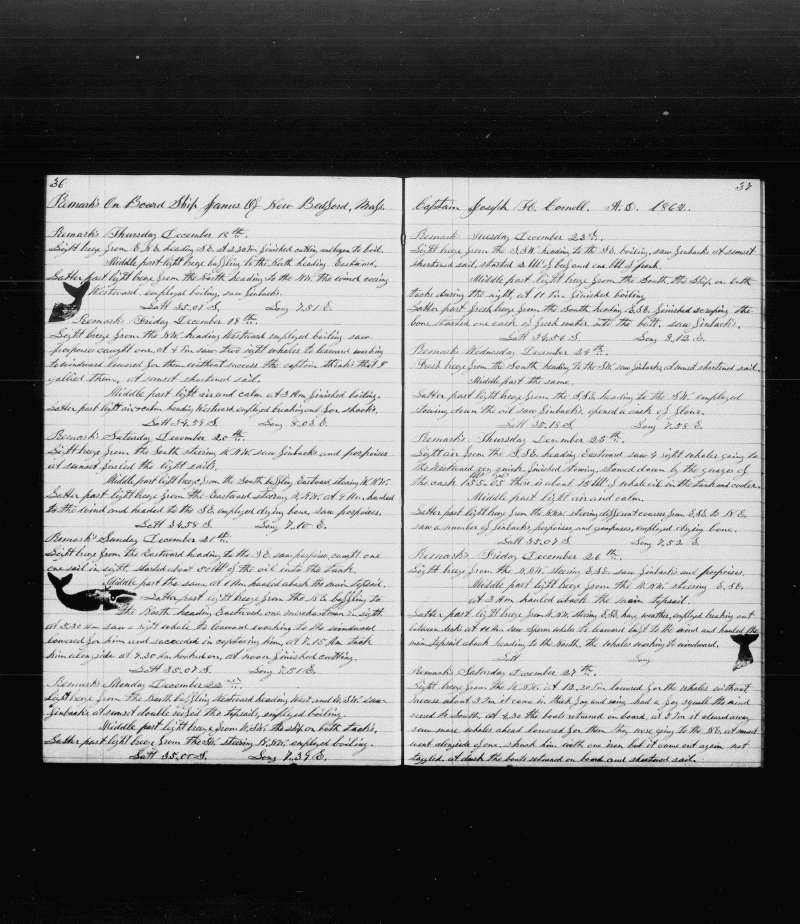 36
Remarks On Board Ship James Of New Bedford, Mass.
Remarks Thursday December 18th.
Light breeze from E.N.E. heading S.E. at 2.30 P.m. finished cutting and began to boil.
Middle part light breeze baffling to the North heading Eastward.
Latter part light breeze from the North heading to the N.W. the wind veering
Westward. employed boiling, saw finbacks.
Latt 35.01 S. Long 7.51 E.
Remarks Friday December 19th.
Light breeze from the N.W. heading Westward employed boiling saw
porpoises caught one, at 4 P.m saw two right whales to leeward working
to windward lowered for them without success the captain thinks that I
gallied them, at sunset shortened sail.
Middle part light air and calm at 3 A.m finished boiling.
Latter part light air & calm heading Westward employed breaking out for shooks.
Latt 34.59 S. Long 8.03 E.
Remarks Saturday December 20th.
Light breeze from the South steering W.N.W. saw finbacks and porpoises
at sunset furled the light sails.
Middle part light breeze from the South baffling Eastward steering W.N.W.
Latter part light breeze from the Eastward steering W.N.W. at 9 A.m. hauled
to the wind and headed to the S.E. employed drying bone, saw porpoises.
Latt 34.58 S. Long 7.10 E.
Remarks Sunday December 21th.
Light breeze from the Eastward heading to the S.E. saw porpoise, caught one
one sail in sight. started about 50 bbl of the oil into the tank.
Middle part the same at 1 A.m. hauled aback the main topsail.
Latter part light breeze from the N.E. baffling to
the North heading Eastward one merchantman in sight.
at 5.30 A.m saw a right whale to leeward working to the windward
lowered for him and succeeded in capturing him, at 7.15 A.m took
him along side at 7.30 A.m hooked on, at noon finished cutting.
Latt 35.07 S. Long 7.51 E.
Remarks Monday December 22nd.
Light breeze from the North baffling Westward heading West and W.S.W. saw
finbacks, at sunset double reefed the topsails, employed boiling.
Middle part light breeze from W.S.W. the ship on both tacks.
Latter part light breeze from the S.W. steering N.N.W. employed boiling.
Latt 35.00 S. Long 7.39 E.
37
Captain Joseph H. Cornell. A.D. 1862.
Remark Tuesday December 23th.
Light breeze from the S.S.W. heading to the S.E. boiling, saw finbacks at sunset
shortened sail, started 2 bbl of beef and one bbl of pork.
Middle part light breeze from the South, the ship on both
tacks during the night, at 11 P.m. finished boiling
Latter part fresh breeze from the South heading E.S.E. finished scraping the
bone started one cask of fresh water into the butt, saw finbacks.
Latt 34.56 S. Long 8.12 E.
Remarks Wednesday December 24th.
Fresh breeze from the South heading to the S.W. saw finbacks, at sunset shortened sail.
Middle part the same.
Latter part light breeze from the S.S.E. heading to the S.W. employed
stowing down the oil saw finbacks. opened a cask of flour.
Latt 35.18 S. Long 7.58 E.
Remarks Thursday December 25th.
Light air from the S.S.E. heading Eastward saw 4 right whales going to
the Westward quick. finished stowing, stowed down by the gauges of
the cask there is about 10 bbl of whale oil in the tank and cooler.
Middle part light air and calm.
Latter part light breeze from the N.N.W. steering different courses from E.S.E. to N.E.
saw a number of finbacks, porpoises, and grampuses, employed drying bone.
Latt 35.07 S. Long 7.52 E.
Remarks Friday December 26th.
Light breeze from the W.N.W. steering E.S.E. saw finbacks and porpoises.
Middle part light breeze from the W.N.W. steering E.S.E.
at 3 A.m hauled aback the main topsail.
Latter part light breeze from W.N.W. steering E.S.E. hazy weather, employed breaking out
between decks at 11 A.m saw sperm whales to leeward luft to the wind and hauled the
main topsail aback heading to the North, the whales working to windward.
Latt Long
Remarks Saturday December 27th.
Light breeze from the W.N.W. at 12.30 P.m lowered for the whales without
success about 3 P.m it came in thick fog and rainy had a foy squall the wind
veered to South, at 4.30 the boats returned on board, at 5 P.m it cleared away
saw more whales ahead lowered for them they were going to the N.E. at sunset
went alongside of one, struck him with one iron but it came out again not
toggled, at dark the boats returned on board and shortened sail.